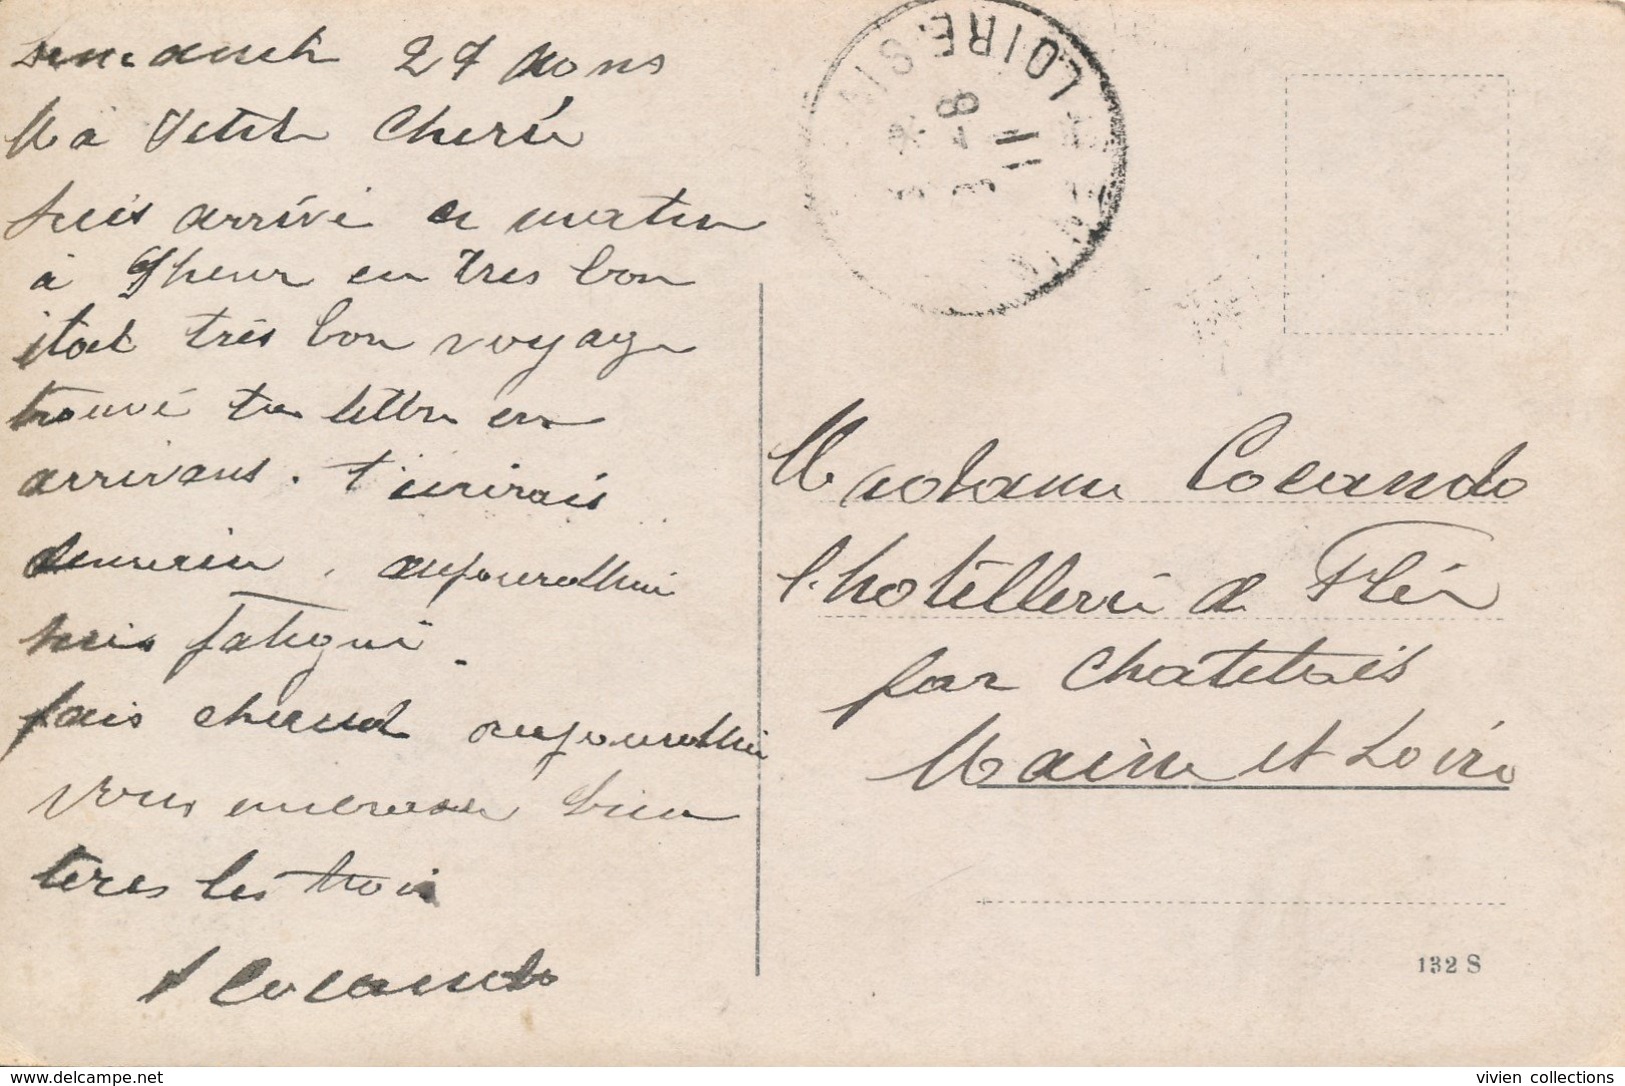 Dimanch 27 Aous
Ma Petite Cherie
suis arrivé ce matin
à 9 heur en tres bon
état très bon voyage
trouvé ta lettre en
arrivans. t'écrirais
demain, aujourdhui
suis fatigué.
fais chaud aujourdhui
vous embrasse bien
tous les trois
A Cocando
LOIRE
8
11
Madame Cocando
l'hotellerie de Flée
par Chatelais
Maine et Loire
132 S
vivien collections
https://www.delcampe.net